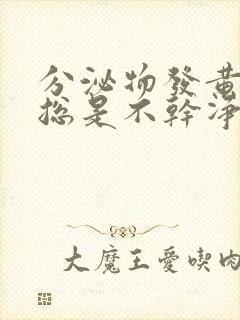 分泌物發黃
總是不幹淨
大魔王愛喫肉